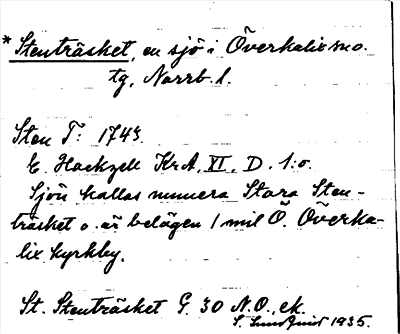 * Stenträsket, en sjö i Överkalix sno.
tg, Norrb. l.
Sten T: 1743.
E. Hackzell KrA, XI. D. 1:0.
Sjön kallas numera Stora Sten-
träsket o. är belägen 1 mil Ö. Överka-
lix kyrkby.
St. Stenträsket G. 30 N.O., ek.
S. Lundquist 1935.